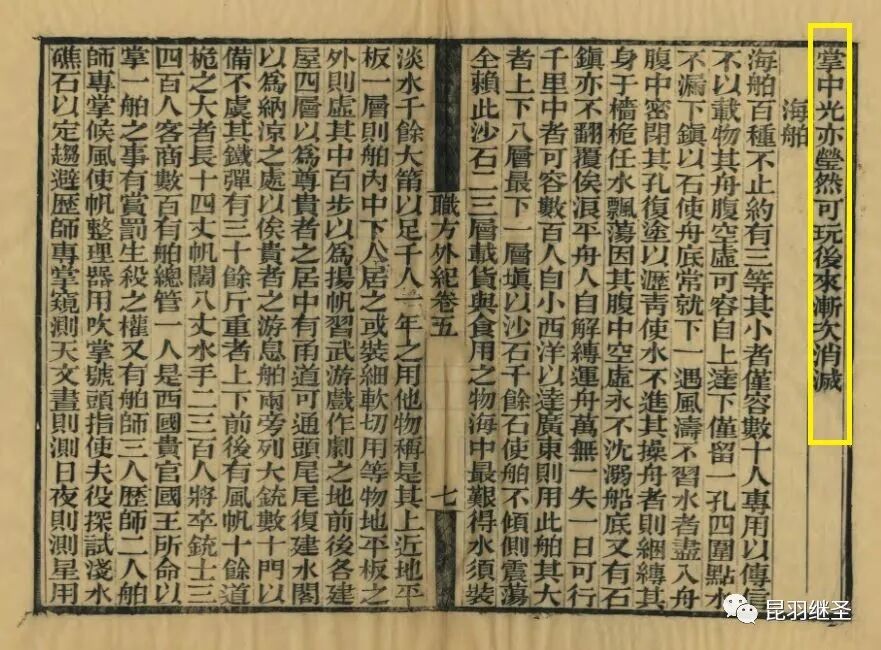 掌中光亦瑩然可玩後來漸次消滅
海舶
海舶百種不止約有三等其小者僅容數十人專用以傳信
不以載物其舟腹空虛可容自上達下僅留一孔四圍點水
不漏下鎮以石使舟底常就下一遇風濤不習水者盡入舟
腹中密閉其孔復塗以瀝青使水不進其操舟者則綑縛其
身于檣桅任水飄蕩因其腹中空虛永不沈溺船底又有石
鎮亦不翻覆俟浪平舟人自解縛運舟萬無一失一日可行
千里中者可容數百人自小西洋以達廣東則用此舶其大
者上下八層最下一層塡以沙石千餘石使舶不傾側震蕩
全賴此沙石二三層載貨與食用之物海中最艱得水須裝
職方外紀卷五
七
淡水千餘大筩以足千人一年之用他物稱是其上近地平
板一層則舶內中下人居之或裝細軟切用等物地平板之
外則虛其中百步以爲揚帆習武游戲作劇之地前後各建
屋四層以爲尊貴者之居中有甬道可通頭尾尾復建水閣
以爲納凉之處以俟貴者之游息舶兩旁列大銃數十門以
備不虞其鐵彈有三十餘斤重者上下前後有風帆十餘道
桅之大者長十四丈帆闊八丈水手二三百人將卒銃士三
四百人客商數百有舶總管一人是西國貴官國王所命以
掌一舶之事有賞罰生殺之權又有舶師三人歷師二人舶
師專掌候風使帆整理器用吹掌號頭指使夫役探試淺水
礁石以定趨避歷師專掌窺測天文晝則測日夜則測星用
昆羽继圣